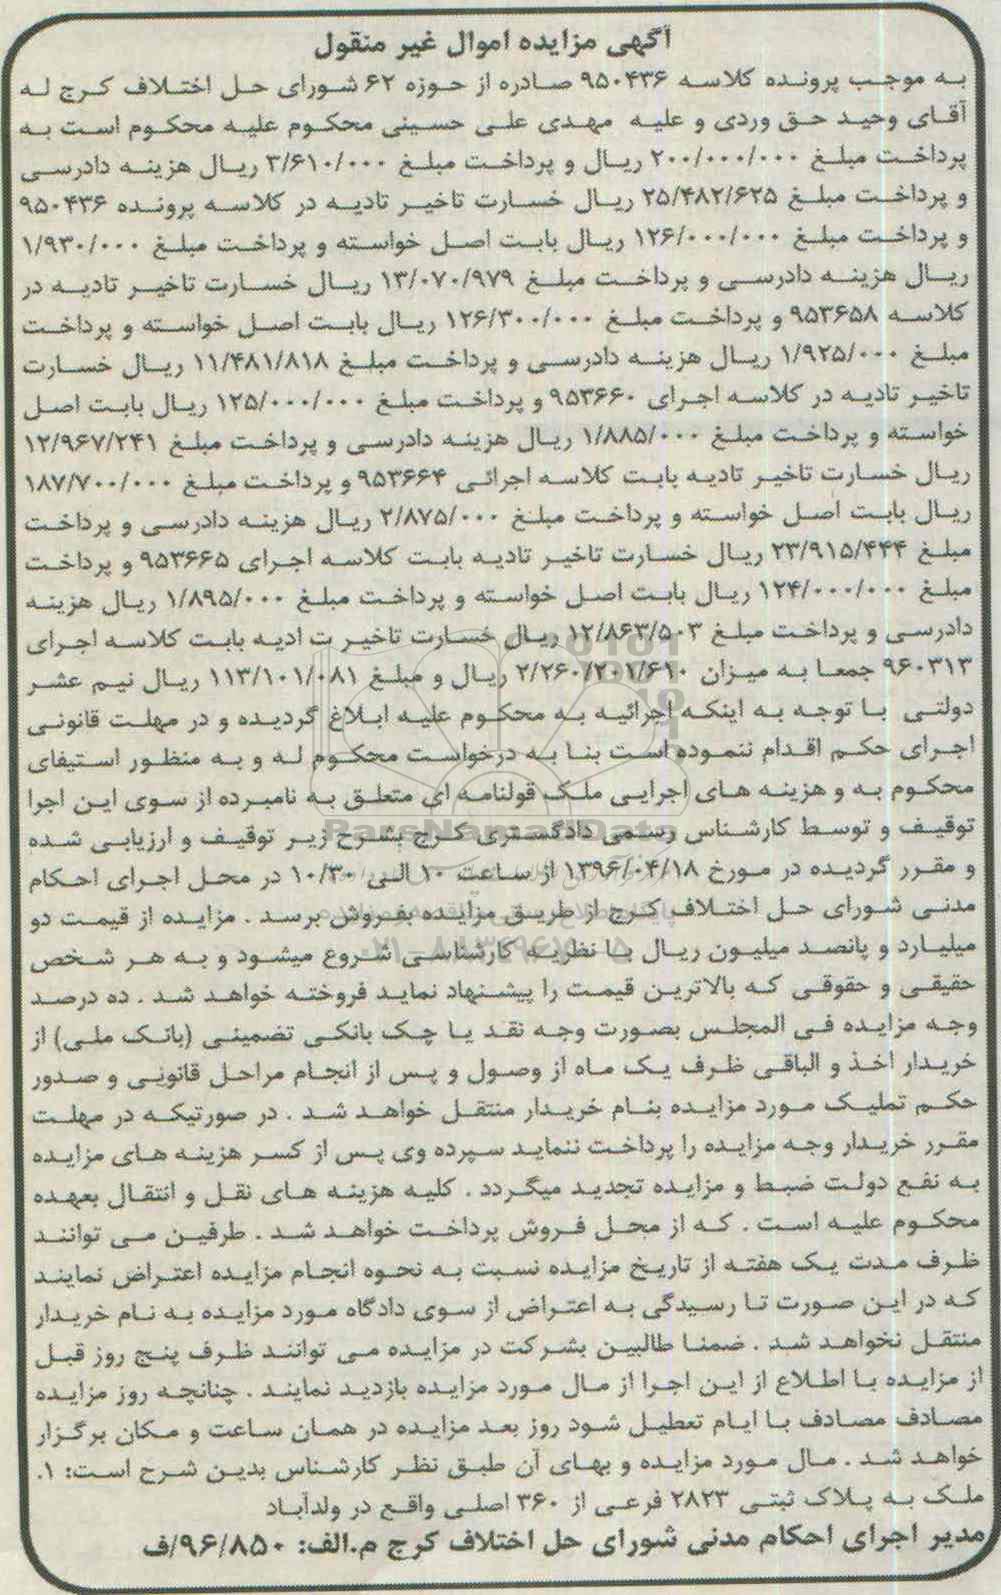 آگهی مزایده اموال غیر منقول
به موجب پرونده کلاسه ۹۵۰۴۳۶ صادره از حوزه ۶۲ شورای حل اختلاف کرج له
آقای وحید حق وردی و علیه مهدی علی حسینی محکوم علیه محکوم است به
پرداخت مبلغ ۲۰۰/۰۰۰/۰۰۰ ریال و پرداخت مبلغ ۳/۶۱۰/۰۰۰ ریال هزینه دادرسی
و پرداخت مبلغ ۲۵/۴۸۲/۶۲۵ ریال خسارت تاخیر تادیه در کلاسه پرونده ۹۵۰۴۳۶
و پرداخت مبلغ ۱۲۶/۰۰۰/۰۰۰ ریال بابت اصل خواسته و پرداخت مبلغ ۱/۹۳۰/۰۰۰
ریال هزینه دادرسی و پرداخت مبلغ ۱۳/۰۷۰/۹۷۹ ریال خسارت تاخیر تادیه در
کلاسه ۹۵۳۶۵۸ و پرداخت مبلغ ۱۲۶/۳۰۰/۰۰۰ ریال بابت اصل خواسته و پرداخت
مبلغ ۱/۹۲۵/۰۰۰ ریال هزینه دادرسی و پرداخت مبلغ ۱۱/۴۸۱/۸۱۸ ریال خسارت
تاخیر تادیه در کلاسه اجرای ۹۵۳۶۶۰ و پرداخت مبلغ ۱۲۵/۰۰۰/۰۰۰ ریال بابت اصل
خواسته و پرداخت مبلغ ۱/۸۸۵/۰۰۰ ریال هزینه دادرسی و پرداخت مبلغ ۱۲/۹۶۷/۲۴۱
ریال خسارت تاخیر تادیه بابت کلاسه اجرائی ۹۵۳۶۶۴ و پرداخت مبلغ ۱۸۷/۷۰۰/۰۰۰
ریال بابت اصل خواسته و پرداخت مبلغ ۲/۸۷۵/۰۰۰ ریال هزینه دادرسی و پرداخت
مبلغ ۲۳/۹۱۵/۴۴۴ ریال خسارت تاخیر تادیه بابت کلاسه اجرای ۹۵۳۶۶۵ و پرداخت
مبلغ ۱۲۴/۰۰۰/۰۰۰ ریال بابت اصل خواسته و پرداخت مبلغ ۱/۸۹۵/۰۰۰ ریال هزینه
دادرسی و پرداخت مبلغ ۱۲/۸۶۳/۵۰۳ ریال خسارت تاخیر ت ادیه بابت کلاسه اجرای
۹۶۰۳۱۳ جمعا به میزان ۲/۲۶۰/۲۰۱/۶۱۰ ریال و مبلغ ۱۱۳/۱۰۱/۰۸۱ ریال نیم عشر
دولتی با توجه به اینکه اجرائیه به محکوم علیه ابلاغ گردیده و در مهلت قانونی
اجرای حکم اقدام ننموده است بنا به درخواست محکوم له و به منظور استیفای
محکوم به و هزینه های اجرایی ملک قولنامه ای متعلق به نامبرده از سوی این اجرا
توقیف و توسط کارشناس رسمی دادگستری کرج بشرح زیر توقیف و ارزیابی شده
و مقرر گردیده در مورخ ۱۳۹۶/۰۴/۱۸ از ساعت ۱۰ الی ۱۰/۳۰ در محل اجرای احکام
مدنی شورای حل اختلاف کرج از طریق مزایده بفروش برسد . مزایده از قیمت دو
میلیارد و پانصد میلیون ریال با نظریه کارشناسی شروع میشود و به هر شخص
حقیقی و حقوقی که بالاترین قیمت را پیشنهاد نماید فروخته خواهد شد . ده درصد
وجه مزایده فی المجلس بصورت وجه نقد یا چک بانکی تضمینی (بانک ملی) از
خریدار اخذ و الباقی ظرف یک ماه از وصول و پس از انجام مراحل قانونی و صدور
حکم تملیک مورد مزایده بنام خریدار منتقل خواهد شد . در صورتیکه در مهلت
مقرر خریدار وجه مزایده را پرداخت ننماید سپرده وی پس از کسر هزینه های مزایده
به نفع دولت ضبط و مزایده تجدید میگردد . کلیه هزینه های نقل و انتقال بعهده
محکوم علیه است . که از محل فروش پرداخت خواهد شد . طرفین می توانند
ظرف مدت یک هفته از تاریخ مزایده نسبت به نحوه انجام مزایده اعتراض نمایند
که در این صورت تا رسیدگی به اعتراض از سوی دادگاه مورد مزایده به نام خریدار
منتقل نخواهد شد . ضمنا طالبین بشرکت در مزایده می توانند ظرف پنج روز قبل
از مزایده با اطلاع از این اجرا از مال مورد مزایده بازدید نمایند . چنانچه روز مزایده
مصادف مصادف با ایام تعطیل شود روز بعد مزایده در همان ساعت و مکان برگزار
خواهد شد . مال مورد مزایده و بهای آن طبق نظر کارشناس بدین شرح است: ۱.
ملک به پلاک ثبتی ۲۸۲۳ فرعی از ۳۶۰ اصلی واقع در ولدآباد
مدیر اجرای احکام مدنی شورای حل اختلاف کرج م.الف: ۹۶/۸۵۰/ف